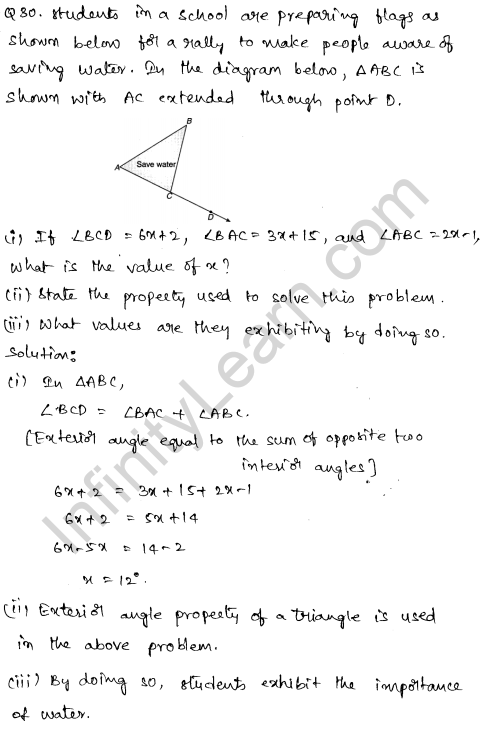 Q30. Students in a school are preparing flags as
shown below for a rally to make people aware of
saving water. In the diagram below, △ABC is
shown with AC extended through point D.
B
A
Save water
C
D
(i) If ∠BCD = 6x+2, ∠BAC = 3x+15, and ∠ABC = 2x-1,
What is the value of x?
(ii) State the property used to solve this problem.
(iii) What values are they exhibiting by doing so.
Solution:
(i) In △ABC,
∠BCD = ∠BAC + ∠ABC.
[Exterior angle equal to the sum of opposite two
interior angles]
6x+2 = 3x+15+2x-1
6x+2 = 5x+14
6x-5x = 14-2
x = 12°.
(ii) Exterior angle property of a triangle is used
in the above problem.
(iii) By doing so, students exhibit the importance
of water.
InfinityLearn.com